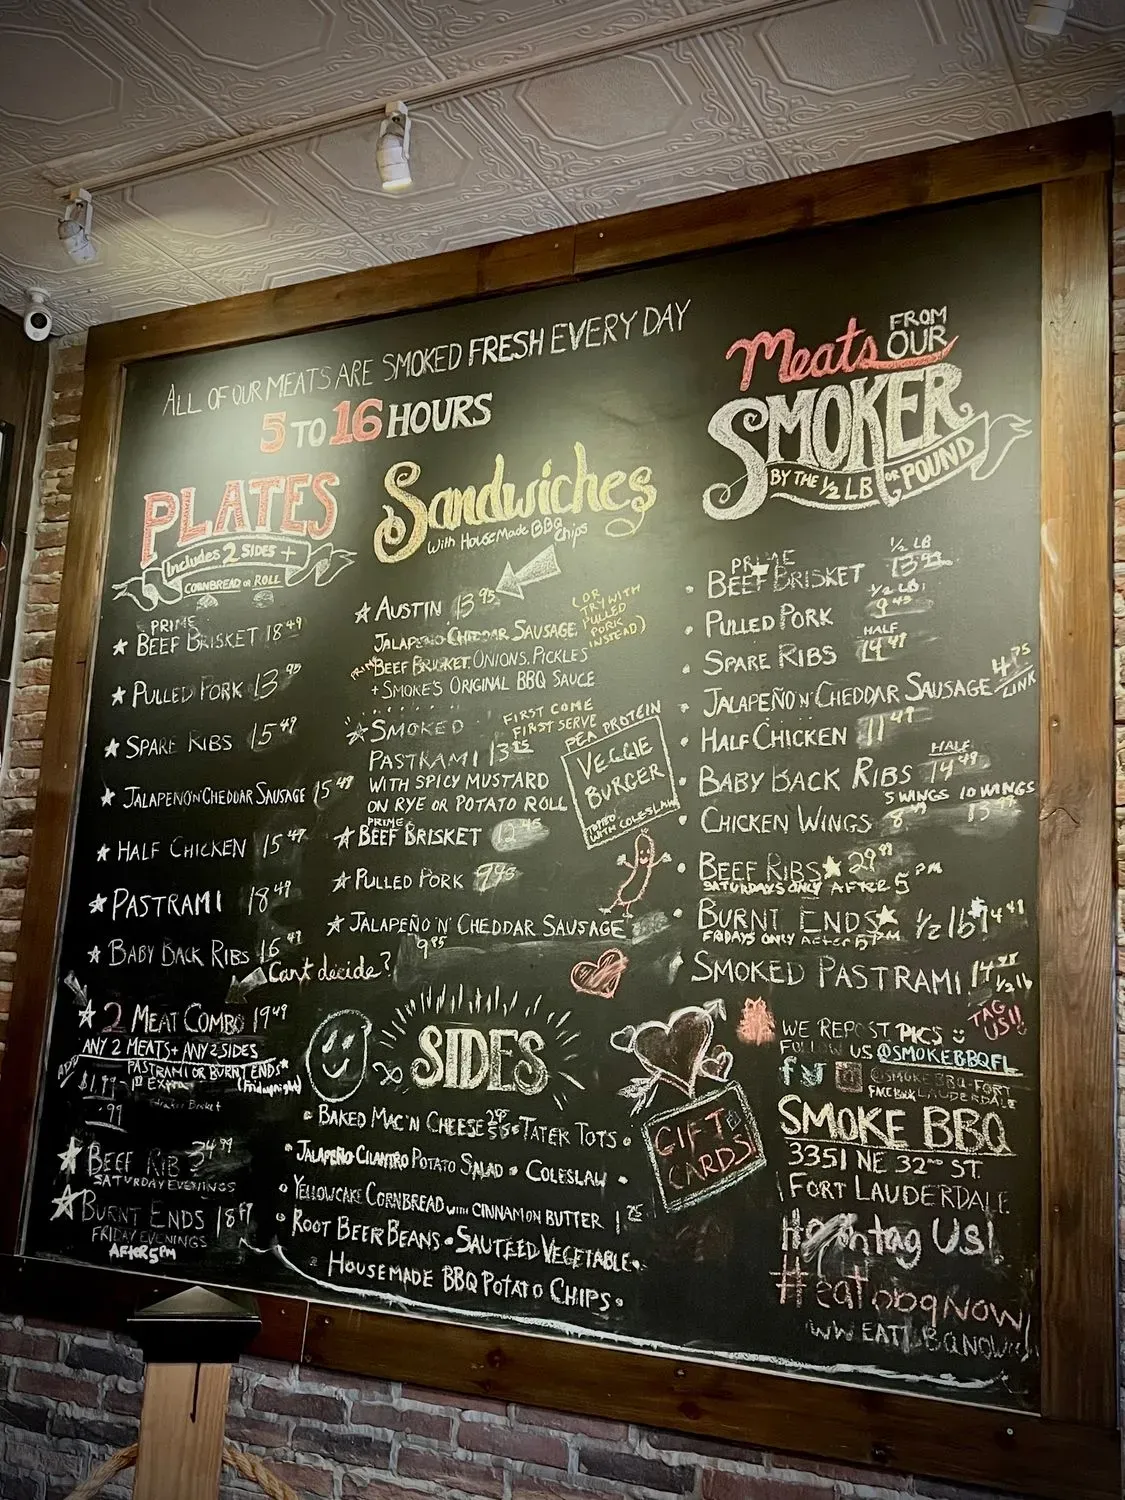 ALL OF OUR MEATS ARE SMOKED FRESH EVERY DAY
5 TO 16 HOURS
PLATES
Includes 2 SIDES +
CORNBREAD OR ROLL
PRIME
BEEF BRISKET 18 49
PULLED PORK 13 95
SPARE RIBS 15 49
JALAPENO N' CHEDDAR SAUSAGE 15 49
HALF CHICKEN 15 47
PASTRAMI 18 49
BABY BACK RIBS 16 49
Can't decide?
2 MEAT COMBO 19 49
ANY 2 MEATS + ANY 2 SIDES
PASTRAMI OR BURNT ENDS*
ADD $1.99
(Friday night)
.99
BEEF RIB 34 99
SATURDAY EVENINGS
BURNT ENDS 18
FRIDAY EVENINGS
AFTER 5 PM
Sandwiches
with HouseMade BBQ Chips
AUSTIN 13 95
(OR TRY WITH PULLED PORK INSTEAD)
JALAPENO CHEDDAR SAUSAGE
PRIME BEEF BRISKET, ONIONS, PICKLES
+ SMOKE'S ORIGINAL BBQ SAUCE
SMOKED
FIRST COME
FIRST SERVE
PASTRAMI 13
WITH SPICY MUSTARD
ON RYE OR POTATO ROLL
PEA PROTEIN
VEGGIE
BURGER
TOPPED
WITH COLESLAW
PRIME
BEEF BRISKET 12 45
PULLED PORK 9 95
JALAPEÑO 'N' CHEDDAR SAUSAGE
9 95
SIDES
BAKED MAC 'N CHEESE • TATER TOTS •
• JALAPEÑO CILANTRO POTATO SALAD • COLESLAW •
• YELLOWCAKE CORNBREAD WITH CINNAMON BUTTER 1 75
• ROOT BEER BEANS • SAUTEED VEGETABLE •
HOUSEMADE BBQ POTATO CHIPS •
GIFT
CARDS
Meats FROM OUR
SMOKER
BY THE ½ LB OR POUND
PRIME
½ LB
• BEEF BRISKET 13 95
½ LB
• PULLED PORK 9 45
HALF
• SPARE RIBS 14 47
• JALAPEÑO N' CHEDDAR SAUSAGE 4 75 LINK
• HALF CHICKEN 11 49
HALF
• BABY BACK RIBS 14 49
5 WINGS 10 WINGS
• CHICKEN WINGS 8 49 13 99
• BEEF RIBS 29 99
SATURDAYS ONLY AFTER 5 PM
• BURNT ENDS ½ lb 14 49
FRIDAYS ONLY AFTER 5 PM
• SMOKED PASTRAMI 14 ½ lb
TAG US!!
WE REPOST PICS
FOLLOW US @SMOKEBBQFL
@SMOKEBBQ-FORT
FACEBOOK LAUDERDALE
SMOKE BBQ
3351 NE 32ND ST.
FORT LAUDERDALE
#Hashtag Us!
#eatbbqNOW